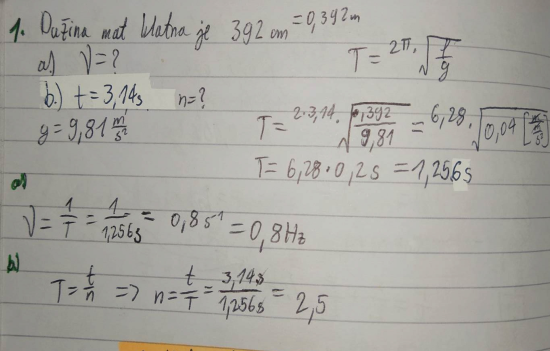 1. Dužina mat klatna je 392 cm = 0,392m
a) ν = ?
T = 2π·√(l/g)
b.) t = 3,14s n = ?
g = 9,81 m/s²
T = 2·3,14·√(0,392/9,81) = 6,28·√(0,04 [m/(m/s²)])
T = 6,28·0,2s = 1,256s
a)
ν = 1/T = 1/1,256s = 0,8 s⁻¹ = 0,8Hz
b)
T = t/n => n = t/T = 3,14s/1,256s = 2,5